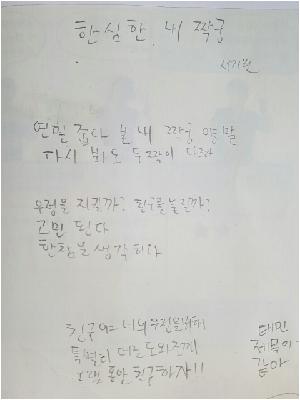 한심한, 내 짝궁
연필 줍다 본 내 짝궁 양말
다시 봐도 두 짝이 다르다
우정을 지킬까? 친구를 놀릴까?
고민 된다
한참을 생각하다
친구야 너의 우정을 위해
특별히 내가 도와줄께
그램 통 친구하자!!
태민
제목이
같아